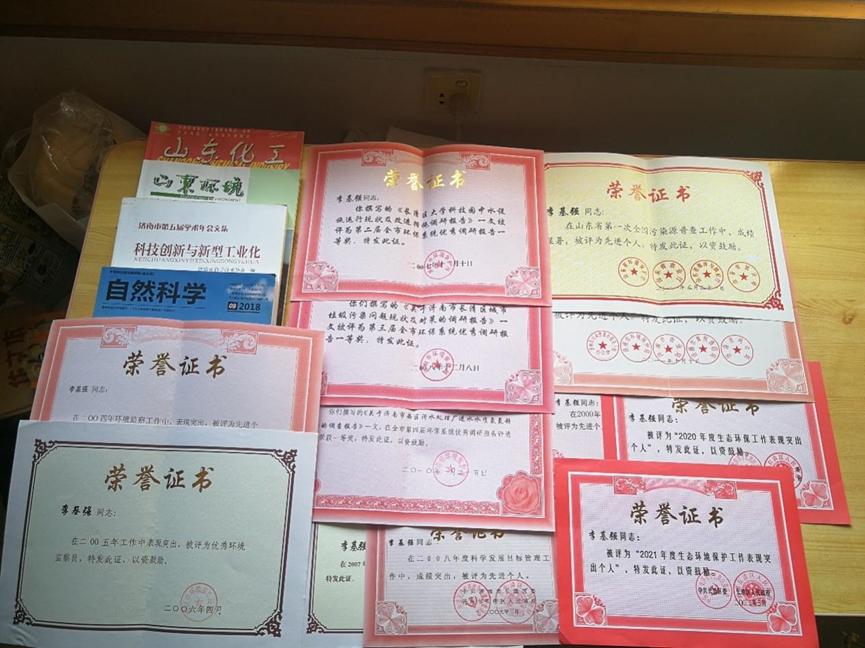 山东化工
山东环境
济南市第五届学术年会文集
科技创新与新型工业化
自然科学
09 2018
荣誉证书
李基强 同志:
在二00四年环境监察工作中,表现突出,被评为先进个
荣誉证书
李基强 同志:
在二00五年工作中表现突出,被评为优秀环境
监察员,特发此证,以资鼓励。
二〇〇六年四月
荣誉证书
李基强同志:
你撰写的《长清区大学科技园中水设
施运行现状及改进 调研报告》一文被
评为第二届全市环保系统优秀调研报告一
等奖,特发此证。
二〇〇七年 月十日
你们撰写的《关于济南市长清区城市
垃圾污染问题现状及对策的调研报告》一
文被评为第三届全市环保系统优秀调研报
告一等奖,特发此证。
二〇〇八年十二月八日
你们撰写的《关于济南市 区污水处理厂进水水质
的调查报告》一文,在全市第四届环保系统优秀调研报告评选
荣获一等奖,特发此证,以资鼓励。
二〇一〇年
在2007
特发此证。
荣誉证书
李基强 同志:
在二00八年度科学发展目标管理工
作中,成绩突出,被评为先进个人。
二〇〇九年 月
荣誉证书
李基强 同志:
在山东省第一次全国污染源普查工作中,成绩
显著,被评为先进个人,特发此证,以资鼓励。
被评为先进个人,特发此证,以资鼓励。
李基强 同志:
在2009年
被评为先进个
荣誉证书
李基强 同志:
被评为“2020年度生态环保工作表现突
出个人”,特发此证,以资鼓励。
荣誉证书
李基强 同志:
被评为“2021年度生态环境保护工作表现突
出个人”,特发此证,以资鼓励。